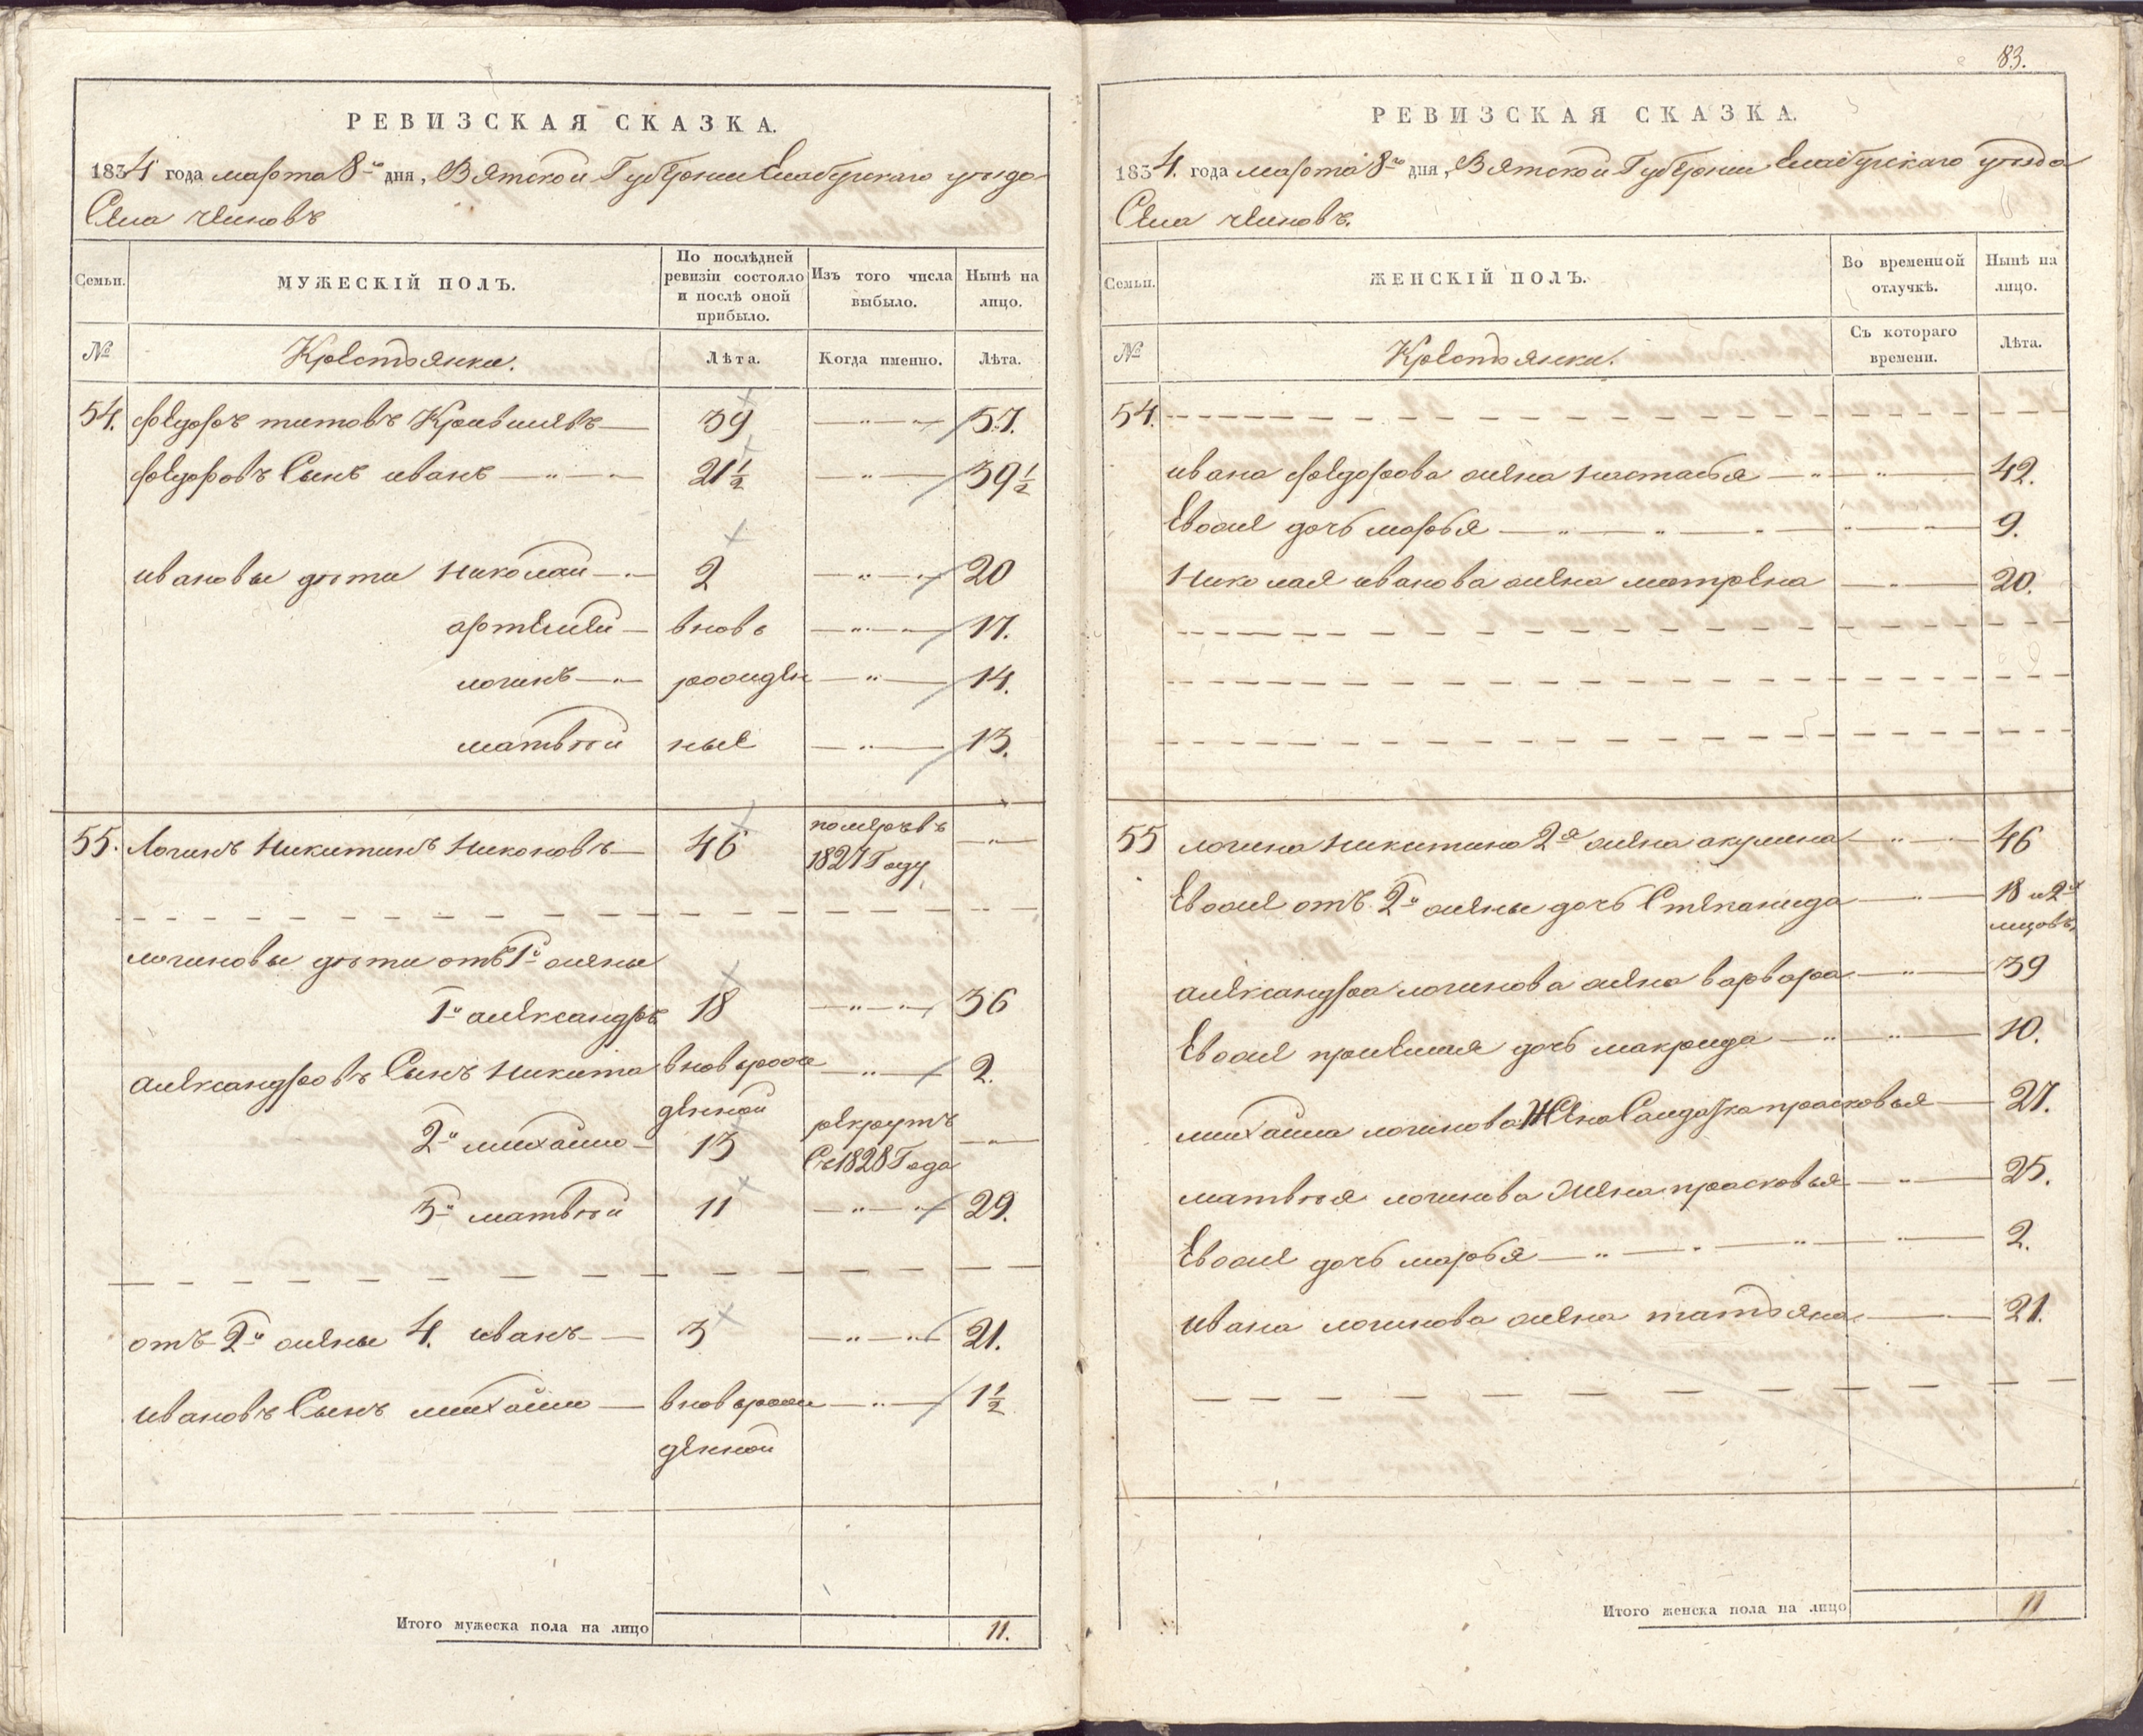 РЕВИЗСКАЯ СКАЗКА.
1834 года марта 8го дня, Вятской Губернии Елабугскаго уѣзда
Села челновъ
Семьи. МУЖЕСКІЙ ПОЛЪ. По послѣдней ревизіи состояло и послѣ оной прибыло. Изъ того числа выбыло. Нынѣ на лицо.
№ Крестьянки. Лѣта. Когда именно. Лѣта.
54. федоръ титовъ 39 57.
федоровъ Сынъ иванъ 21½ 39½
ивановы дѣти николай 2 20
артемей вновь 17.
логинъ рожден 14.
матвѣй ные 13.
55. Логинъ Никитинъ Никоновъ 46 померъ въ
1827 Году
логиновы дѣти отъ 1й жены
1й александръ 18 36
александровъ Сынъ Никита вновь рож 2.
денной
2й михайло 13 рекрутъ
Съ 1828 Года
3й матвѣй 11 29.
отъ 2й жены 4. иванъ 3 21.
ивановъ Сынъ михайло вновь рож 1½
денной
Итого мужеска пола на лицо 11.
83.
РЕВИЗСКАЯ СКАЗКА.
1834. года марта 8го дня, Вятской Губернии Елабугскаго уѣзда
Села челновъ.
Семьи. ЖЕНСКІЙ ПОЛЪ. Во временной отлучкѣ. Нынѣ на лицо.
№ Крестьянки. Съ котораго времени. Лѣта.
54.
ивана федорова жена настасья 42.
Евоже дочь марья 9.
Николая иванова жена матрена 20.
55 логина никитина 2я жена акулина 46
Евоже отъ 2й жены дочь Степанида 18 и 2х
мцовъ.
александра логинова жена варвара 39
Евоже приемшая дочь макрида 10.
михайла логинова Жена Салдатка прасковья 27.
матвѣя логинова жена прасковья 25.
Евоже дочь марья 2.
ивана логинова жена татьяна 21.
Итого женска пола на лицо 11